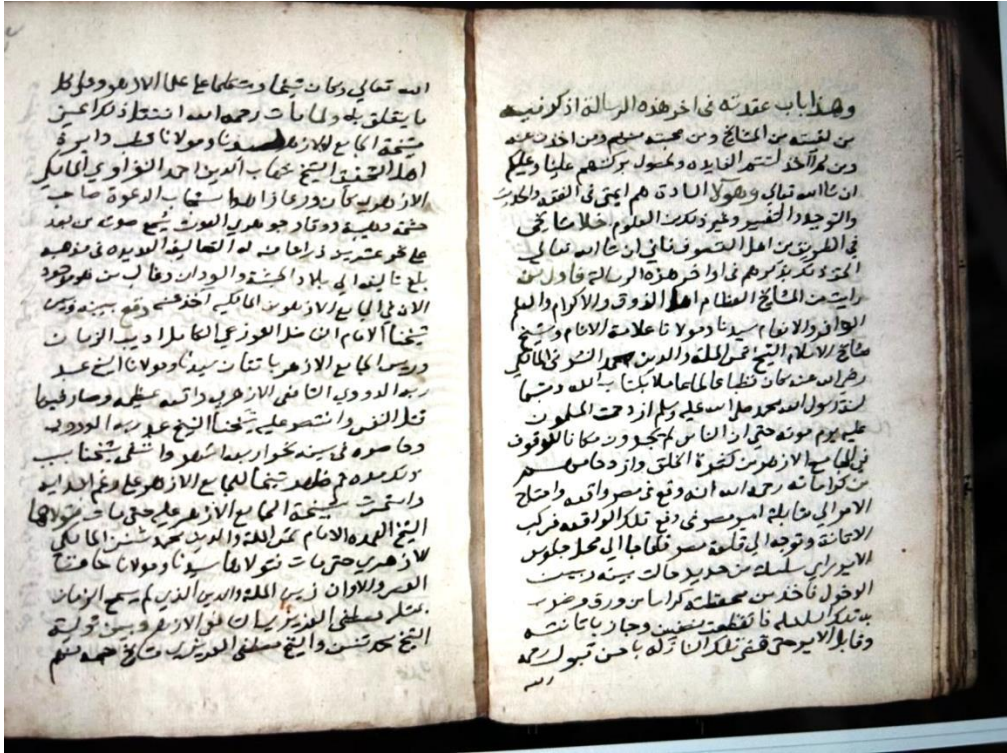 وهذا باب عقدته فى اخر هذه الرسالة اذكر فيه
من لقيته من المشايخ ومن صحبته منهم ومن اخذت عنه
ومن لم آخذ لتتم الفايده ولحصول بركتهم علينا وعليكم
ان شا الله تعالى وهولا السادة هم ايمتى فى الفقه والحديث
والتوحيد والتفسير وغير ذلك من العلوم خلا مشايخى
فى الطريق من اهل التصوف فانى ان شا الله تعالى
نكر بذكرهم فى اواخر هذه الرسالة فاول من
رايت من المشايخ العظام اهل الذوق والاكرام والعلم
الوافر والانعام سيدنا ومولانا علامة الانام وشيخ
مشايخ الاسلام الشيخ شمس الملة والدين محمد النشرتى المالكى
رضى الله عنه كان قطبا عالما عاملا بكتاب الله ومتبعا
لسنة رسول الله محمد صلى الله عليه وسلم ازدحمت المسلمون
عليه يوم موته حتى ان الناس لم يجدون مكانا للوقوف
فى الجامع الازهر من كثرة الخلق وازدحامهم
من كراماته رحمه الله انه وقع فى مصر واقعه واحتاج
الامر الى مقابلة امير مصر فى دفع تلك الواقعه فركب
الاستاذ وتوجه الى قلعة مصر فلما جا الى محل جلوس
الامير راى سلسلة من حديد حالت بينه وبين
الدخول فاخذ من محفظته كراسا من ورق وضرب
به تلك السلسله فانقطعت نصفين وجاز باتانته
وقابل الامير حتى قضى تلك النازله باحسن قبول رحمه
الله
الله تعالى وكان شيخا ومتكلما على علما الازهر وعلى كل
ما يتعلق به ولما مات رحمه الله انتقل ذلك اعنى
مشيخة الجامع الازهر لسيدنا ومولانا قطب دايرة
اهل الشيخ شهاب الدين احمد النفراوى المالكى
الازهرى كان ورعا زاهدا مستجاب الدعوة صاحب
حشمة وهيبة ووقار جوهرى الصوت يسمع صوته من بعد
على نحو عشرين ذراعا منه له التعاليف العديده فى مذهبه
بلغ تاليفه الى بلاد الحبشة والسودان وغالب من هو موجود
الان فى الجامع الازهر من المالكيه اخذ عنه وقع بينه وبين
شيخنا الامام الفاضل اللوذعى الكامل اديب الزمان
ومدرس الجامع الازهر باتقان سيدنا ومولانا الشيخ عبد
ربه الديوى الشافعى الازهرى واقعه عظيمه وصار فيها
قتل النفس وانتصر عليه شيخنا الشيخ عبد ربه
وحاصروه فى بيته نحو اربعة اشهر واشتفى شيخنا بسبب
ذلك مده ثم ظهر شيخا للجامع الازهر على رغم اعدايه
واستمرت مشيخة الجامع الازهر عليه حتى مات فتولاها
الشيخ العمده الامام شمس الملة والدين محمد شنن المالكى
الازهرى حتى مات فتولاها سيدنا ومولانا خاتمة
العصر والاوان زين الملة والدين الذى لم يسمح الزمان
بمثله مصطفى العزيزى شافعى الازهر وبين تولية
الشيخ محمد شنن والشيخ مصطفى العزيزى مشايخ خمسة منهم